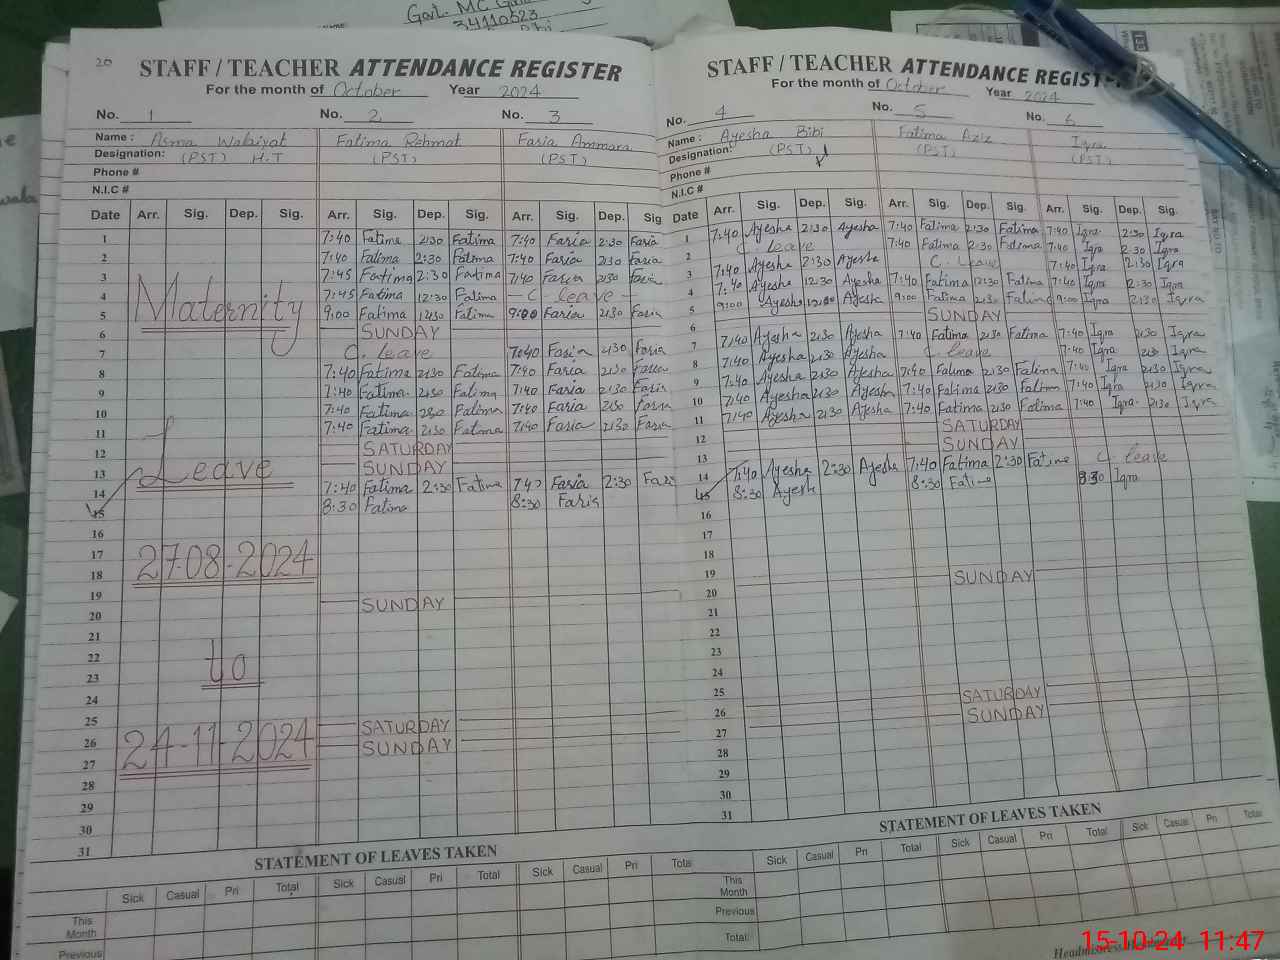 Govt. MC
34110523
20
STAFF / TEACHER ATTENDANCE REGISTER
For the month of October Year 2024
No. 1 No. 2 No. 3
Name : Asma Walaiyat Fatima Rehmat Faria Ammara
Designation: (PST) H.T (PST) (PST)
Phone #
N.I.C #
Date Arr. Sig. Dep. Sig. Arr. Sig. Dep. Sig. Arr. Sig. Dep. Sig
1 7:40 Fatima 2:30 Fatima 7:40 Faria 2:30 Faria
2 7:40 Fatima 2:30 Fatima 7:40 Faria 2:30 Faria
3 7:45 Fatima 2:30 Fatima 7:40 Faria 2:30 Faria
Maternity
4 7:45 Fatima 12:30 Fatima C leave
5 9:00 Fatima 12:30 Fatima 9:00 Faria 2:30 Faria
6 SUNDAY
7 C. leave 7:40 Faria 2:30 Faria
8 7:40 Fatima 2:30 Fatima 7:40 Faria 2:30 Faria
9 7:40 Fatima 2:30 Fatima 7:40 Faria 2:30 Faria
10 7:40 Fatima 2:30 Fatima 7:40 Faria 2:30 Faria
11 7:40 Fatima 2:30 Fatima 7:40 Faria 2:30 Faria
12 SATURDAY
13 Leave SUNDAY
14 7:40 Fatima 2:30 Fatima 7:40 Faria 2:30 Faria
15 8:30 Fatima 8:30 Faria
16
17
27-08-2024
18
19
20 SUNDAY
21
22
to
23
24
25
26 SATURDAY
24-11-2024
27 SUNDAY
28
29
30
31
STATEMENT OF LEAVES TAKEN
Sick Casual Pri Total Sick Casual Pri Total Sick Casual Pri Total
This Month
Previous
STAFF / TEACHER ATTENDANCE REGIST
For the month of October Year 2024
No. 4 No. 5 No. 6
Name : Ayesha Bibi Fatima Aziz Iqra
Designation: (PST) (PST) (PST)
Phone #
N.I.C #
Date Arr. Sig. Dep. Sig. Arr. Sig. Dep. Sig. Arr. Sig. Dep. Sig.
1 7:40 Ayesha 2:30 Ayesha 7:40 Fatima 2:30 Fatima 7:40 Iqra 2:30 Iqra
2 C. leave 7:40 Fatima 2:30 Fatima 7:40 Iqra 2:30 Iqra
3 7:40 Ayesha 2:30 Ayesha C. Leave 7:40 Iqra 2:30 Iqra
4 7:40 Ayesha 12:30 Ayesha 7:40 Fatima 12:30 Fatima 7:40 Iqra 2:30 Iqra
5 9:00 Ayesha 12:30 Ayesha 9:00 Fatima 2:30 Fatima 9:00 Iqra 2:30 Iqra
6 SUNDAY
7 7:40 Ayesha 2:30 Ayesha 7:40 Fatima 2:30 Fatima 7:40 Iqra 2:30 Iqra
8 7:40 Ayesha 2:30 Ayesha C. leave 7:40 Iqra 2:30 Iqra
9 7:40 Ayesha 2:30 Ayesha 7:40 Fatima 2:30 Fatima 7:40 Iqra 2:30 Iqra
10 7:40 Ayesha 2:30 Ayesha 7:40 Fatima 2:30 Fatima 7:40 Iqra 2:30 Iqra
11 7:40 Ayesha 2:30 Ayesha 7:40 Fatima 2:30 Fatima 7:40 Iqra 2:30 Iqra
12 SATURDAY
13 SUNDAY
14 7:40 Ayesha 2:30 Ayesha 7:40 Fatima 2:30 Fatima C. leave
15 8:30 Ayesh 8:30 Fatima 8:30 Iqra
16
17
18
19
20 SUNDAY
21
22
23
24
25
26 SATURDAY
27 SUNDAY
28
29
30
31
STATEMENT OF LEAVES TAKEN
Sick Casual Pri Total Sick Casual Pri Total Sick Casual Pri Total
This Month
Previous
Total:
15-10-24 11:47